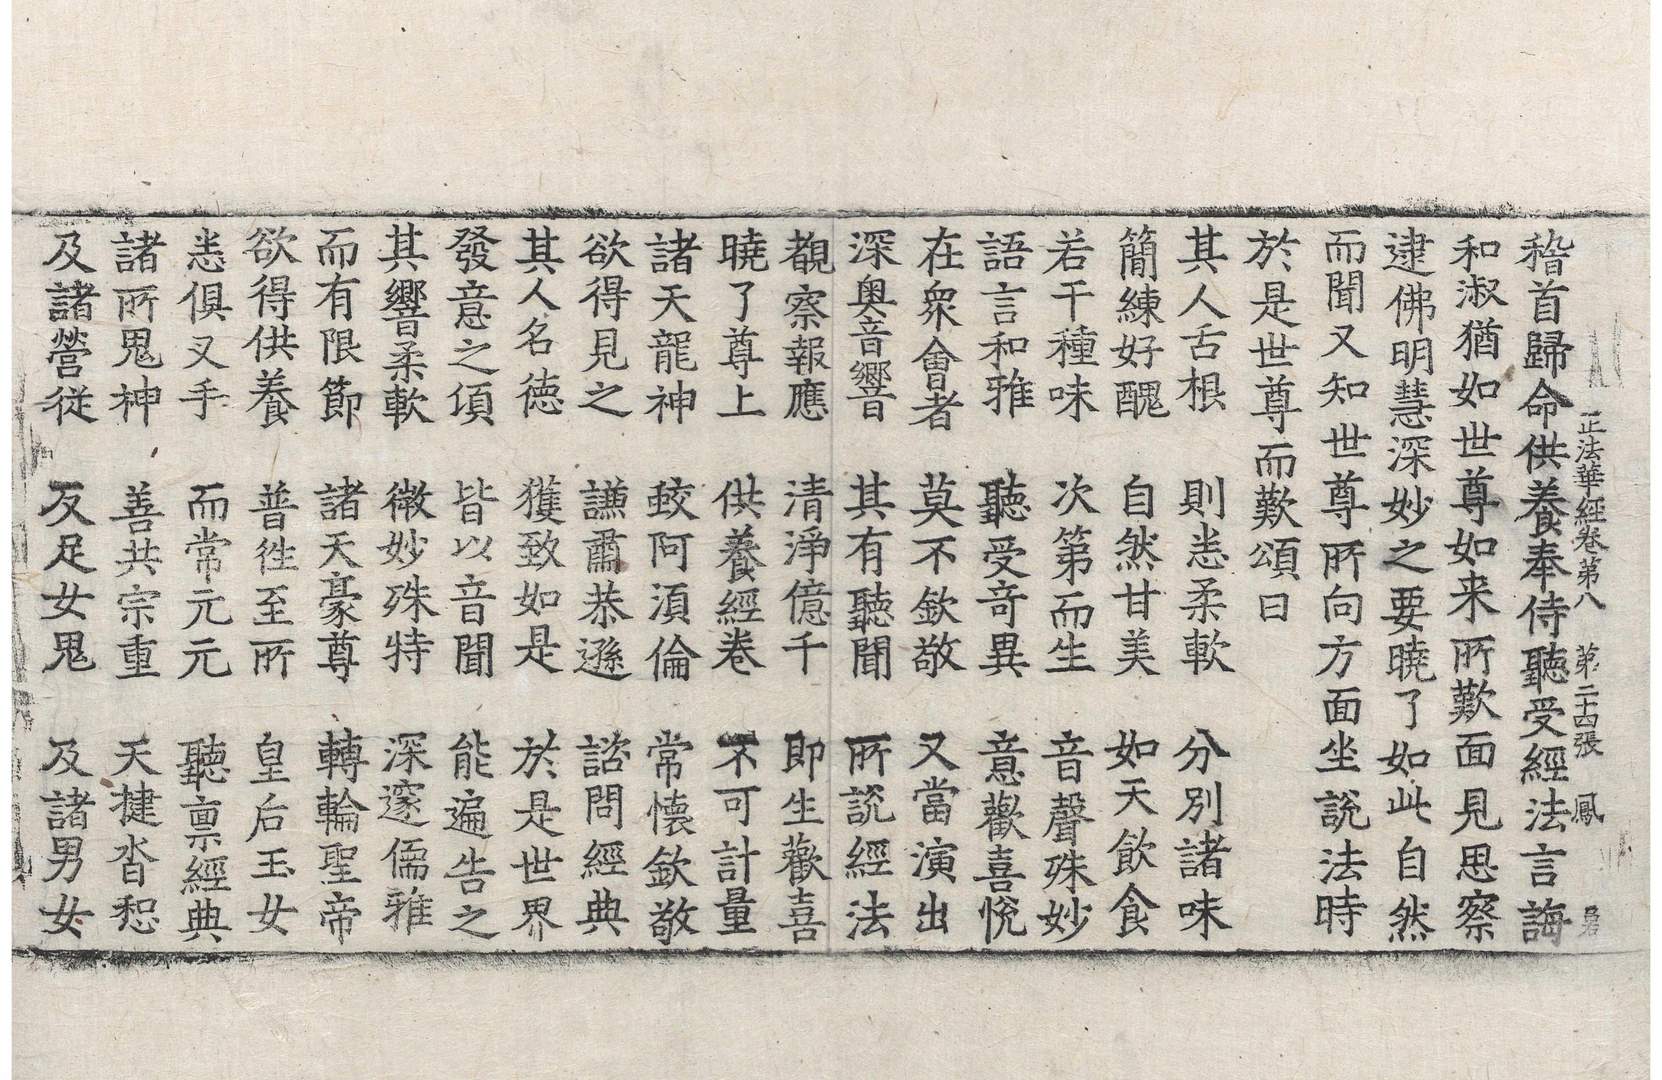 正法華經卷第八 第二十四張 鳳
稽首歸命供養奉侍聽受經法言誨
和淑猶如世尊如来所歎面見思察
逮佛明慧深妙之要曉了如此自然
而聞又知世尊所向方面坐說法時
於是世尊而歎頌曰
其人舌根 則悉柔軟 分別諸味
簡練好醜 自然甘美 如天飲食
若干種味 次第而生 音聲殊妙
語言和雅 聽受奇異 意歡喜悅
在衆會者 莫不欽敬 又當演出
深奧音響 其有聽聞 所說經法
覩察報應 清淨億千 即生歡喜
曉了尊上 供養經卷 不可計量
諸天龍神 致阿湏倫 常懷欽敬
欲得見之 謙肅恭遜 諮問經典
其人名德 獲致如是 於是世界
發意之頃 皆以音聞 能遍告之
其響柔軟 微妙殊特 深邃儒雅
而有限節 諸天豪尊 轉輪聖帝
欲得供養 普徃至所 皇后玉女
悉俱叉手 而常元元 聽禀經典
諸所鬼神 善共宗重 天揵沓惒
及諸營從 反足女鬼 及諸男女